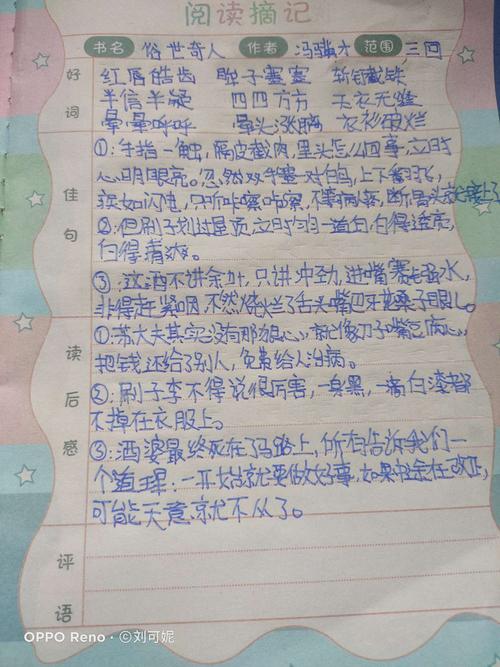 阅读摘记
书名 俗世奇人 作者 冯骥才 范围 三回
好词
红唇皓齿 脖子塞塞 斩钉截铁
半信半疑 四四方方 天衣无缝
晕晕呼呼 晕头涨脑 衣衫破烂
佳句
①:手指一触,隔皮截肉,里头怎么回事,立时
心明眼亮。忽然双手赛一对白鸟,上下翻飞,
疾如闪电,只听咔嚓咔嚓,不等病家 断骨头就接上了
②:但刷子划过屋顶,立时匀匀一道白,白得透亮,
白得清爽。
③:这酒不讲余力,只讲冲劲,进嘴赛镪水,
非得赶紧咽,不然烧烂了舌头嘴巴牙花嗓子眼儿。
读后感
①:苏大夫其实没有那狠心,就像刀子嘴豆腐心,
把钱还给了别人,免费给人治病。
②:刷子李不得说很厉害,一身黑,一滴白漆都
不掉在衣服上。
③:酒婆最终死在了马路上,所有告诉我们一
个道理:一开始就要做好事,如果 在改正,
可能天意就不从了。
评语
OPPO Reno · ©刘可妮